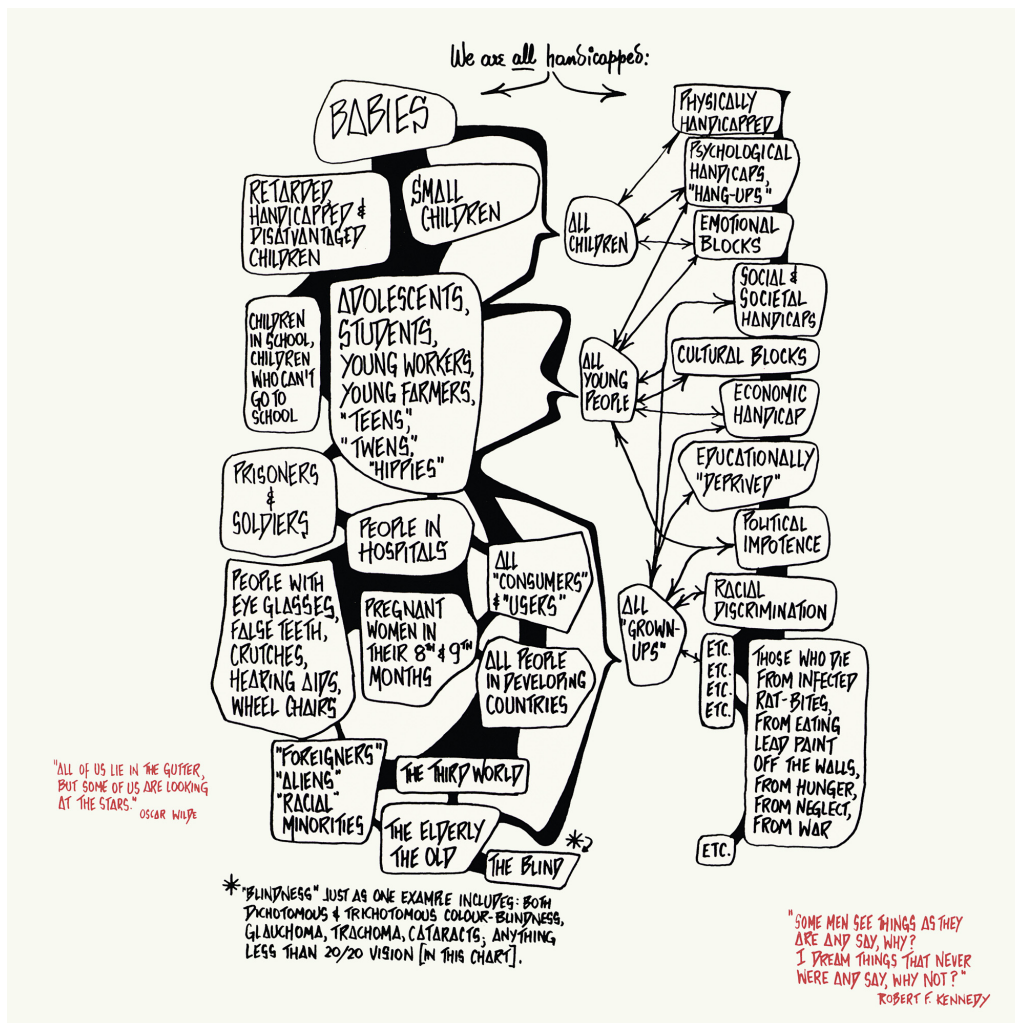 We are all handicapped:
BABIES
RETARDED,
HANDICAPPED &
DISATVANTAGED
CHILDREN
SMALL
CHILDREN
CHILDREN
IN SCHOOL,
CHILDREN
WHO CAN'T
GO TO
SCHOOL
ADOLESCENTS,
STUDENTS,
YOUNG WORKERS,
YOUNG FARMERS,
"TEENS",
"TWENS",
"HIPPIES"
PRISONERS
&
SOLDIERS
PEOPLE IN
HOSPITALS
ALL
"CONSUMERS"
& "USERS"
PEOPLE WITH
EYE GLASSES,
FALSE TEETH,
CRUTCHES,
HEARING AIDS,
WHEEL CHAIRS
PREGNANT
WOMEN IN
THEIR 8TH & 9TH
MONTHS
ALL PEOPLE
IN DEVELOPING
COUNTRIES
"FOREIGNERS"
"ALIENS"
"RACIAL"
MINORITIES
THE THIRD WORLD
THE ELDERLY
THE OLD
THE BLIND
*
ALL
CHILDREN
ALL
YOUNG
PEOPLE
ALL
"GROWN-
UPS"
PHYSICALLY
HANDICAPPED
PSYCHOLOGICAL
HANDICAPS,
"HANG-UPS"
EMOTIONAL
BLOCKS
SOCIAL &
SOCIETAL
HANDICAPS
CULTURAL BLOCKS
ECONOMIC
HANDICAP
EDUCATIONALLY
"DEPRIVED"
POLITICAL
IMPOTENCE
RACIAL
DISCRIMINATION
ETC.
ETC.
ETC.
ETC.
THOSE WHO DIE
FROM INFECTED
RAT-BITES,
FROM EATING
LEAD PAINT
OFF THE WALLS,
FROM HUNGER,
FROM NEGLECT,
FROM WAR
ETC.
"ALL OF US LIE IN THE GUTTER,
BUT SOME OF US ARE LOOKING
AT THE STARS."
OSCAR WILDE
* "BLINDNESS" JUST AS ONE EXAMPLE INCLUDES: BOTH
DICHOTOMOUS & TRICHOTOMOUS COLOUR-BLINDNESS,
GLAUCHOMA, TRACHOMA, CATARACTS; ANYTHING
LESS THAN 20/20 VISION [IN THIS CHART].
"SOME MEN SEE THINGS AS THEY
ARE AND SAY, WHY?
I DREAM THINGS THAT NEVER
WERE AND SAY, WHY NOT?"
ROBERT F. KENNEDY